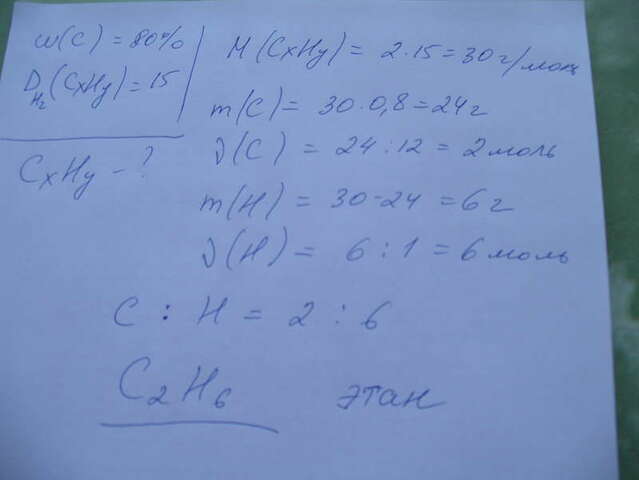 w(C) = 80%
D_H₂(CxHy) = 15
CxHy - ?
M(CxHy) = 2·15 = 30 г/моль
m(C) = 30·0,8 = 24 г
ν(C) = 24 : 12 = 2 моль
m(H) = 30-24 = 6 г
ν(H) = 6 : 1 = 6 моль
C : H = 2 : 6
C₂H₆ этан